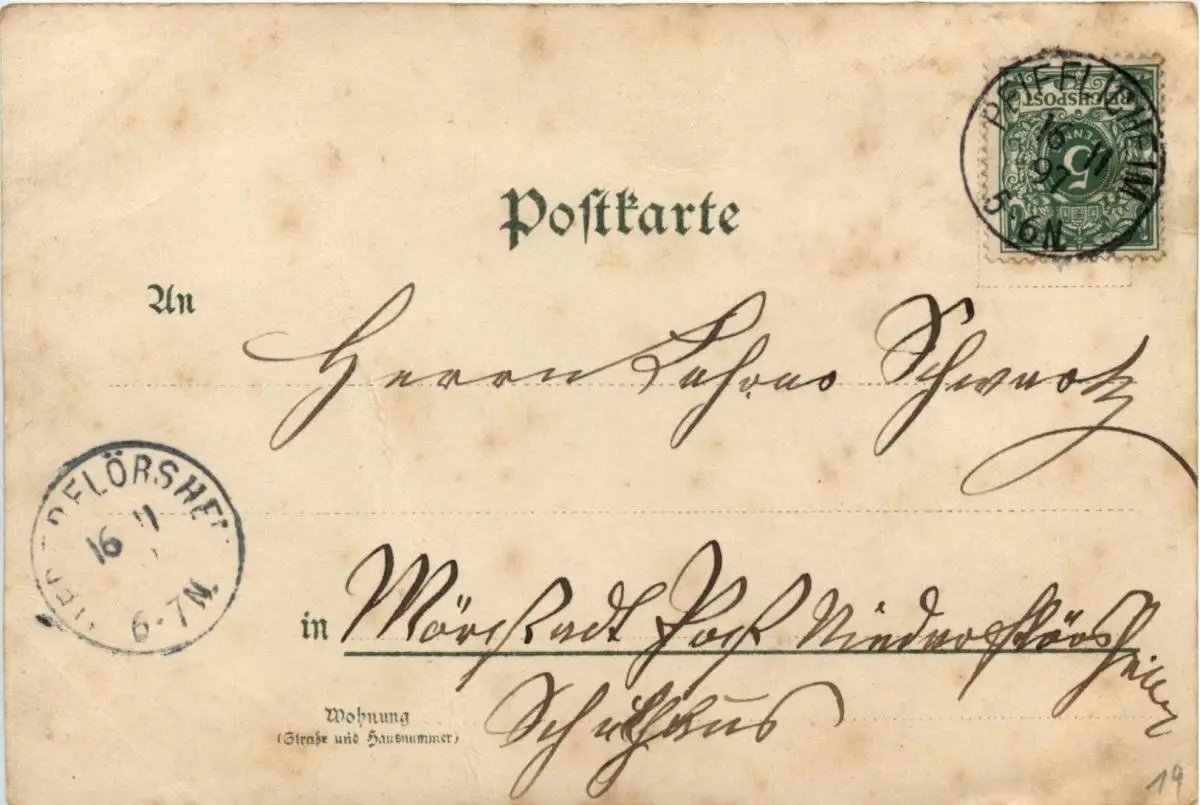 Postkarte
REICHSPOST
PFENNIG
5
PFIFFLIGHEIM
16 11
97
5-6N.
An
Herrn Schwartz
NIEDERFLÖRSHEIM
16 11
6-7N.
in Mörstadt Post Niederflörsheim
Schulhaus
Wohnung
(Straße und Hausnummer)
19